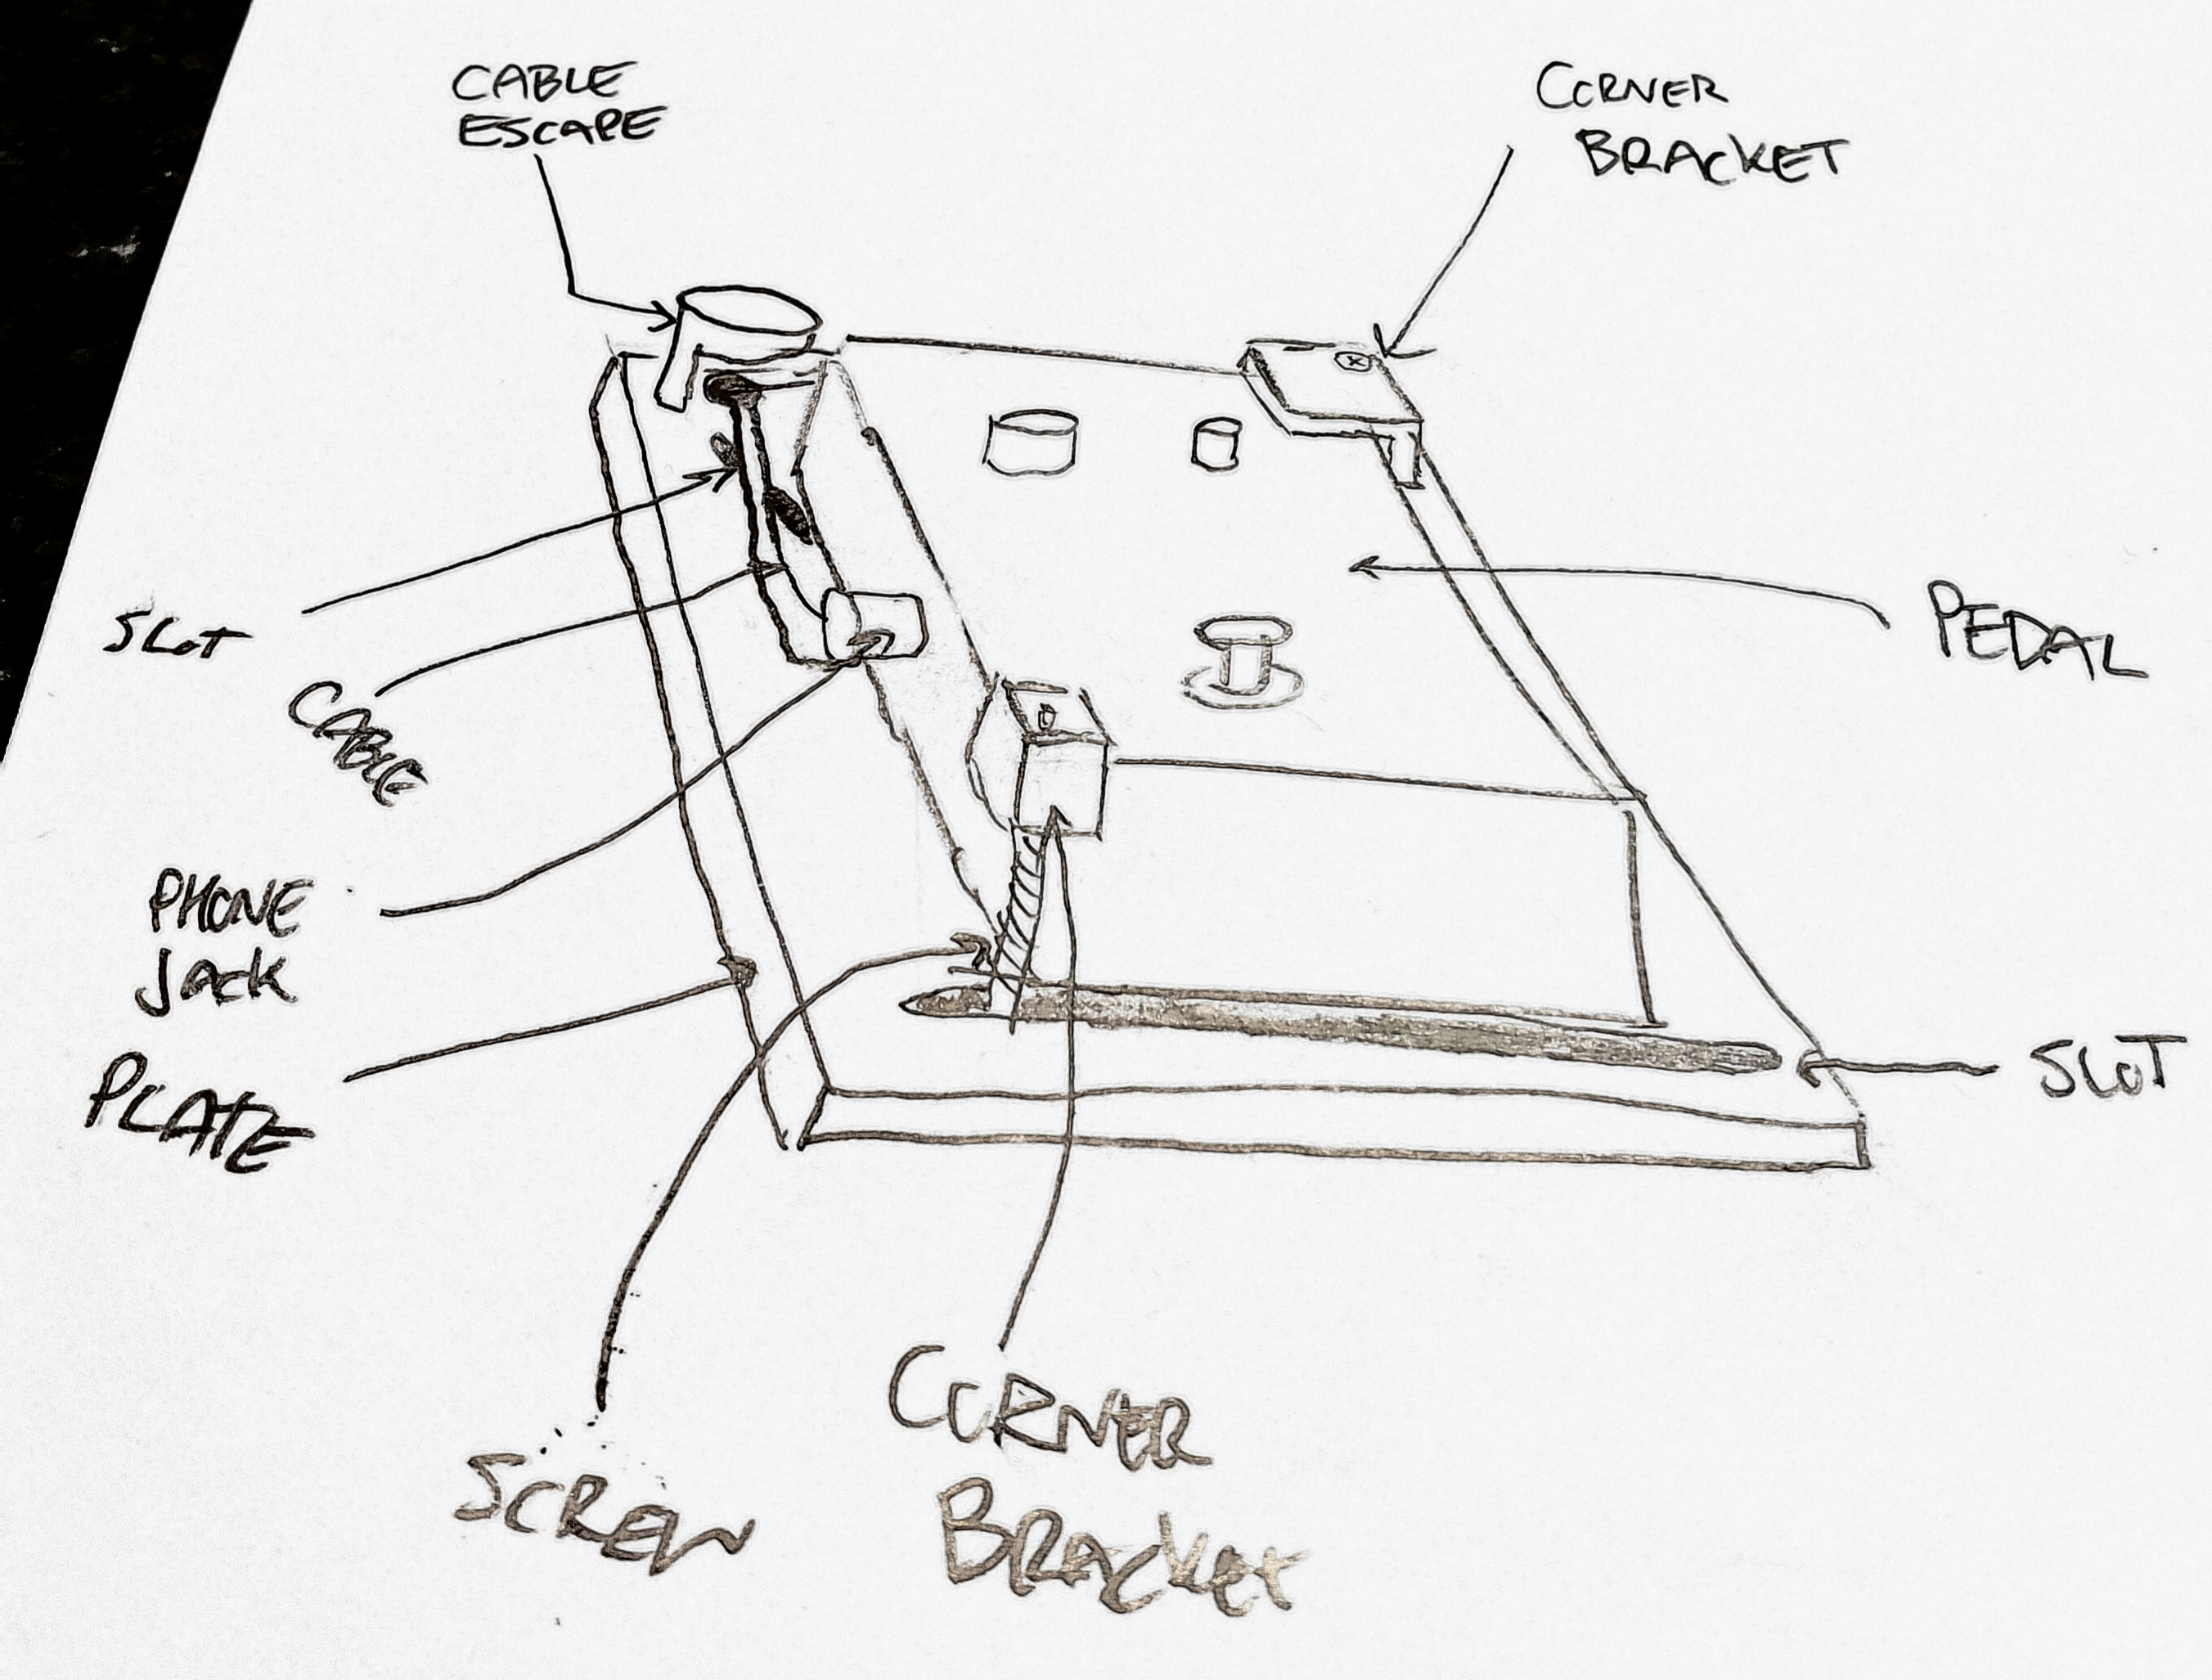 CABLE
ESCAPE
CORNER
BRACKET
SLOT
CABLE
PEDAL
PHONE
JACK
PLATE
SLOT
SCREW
CORNER
BRACKET